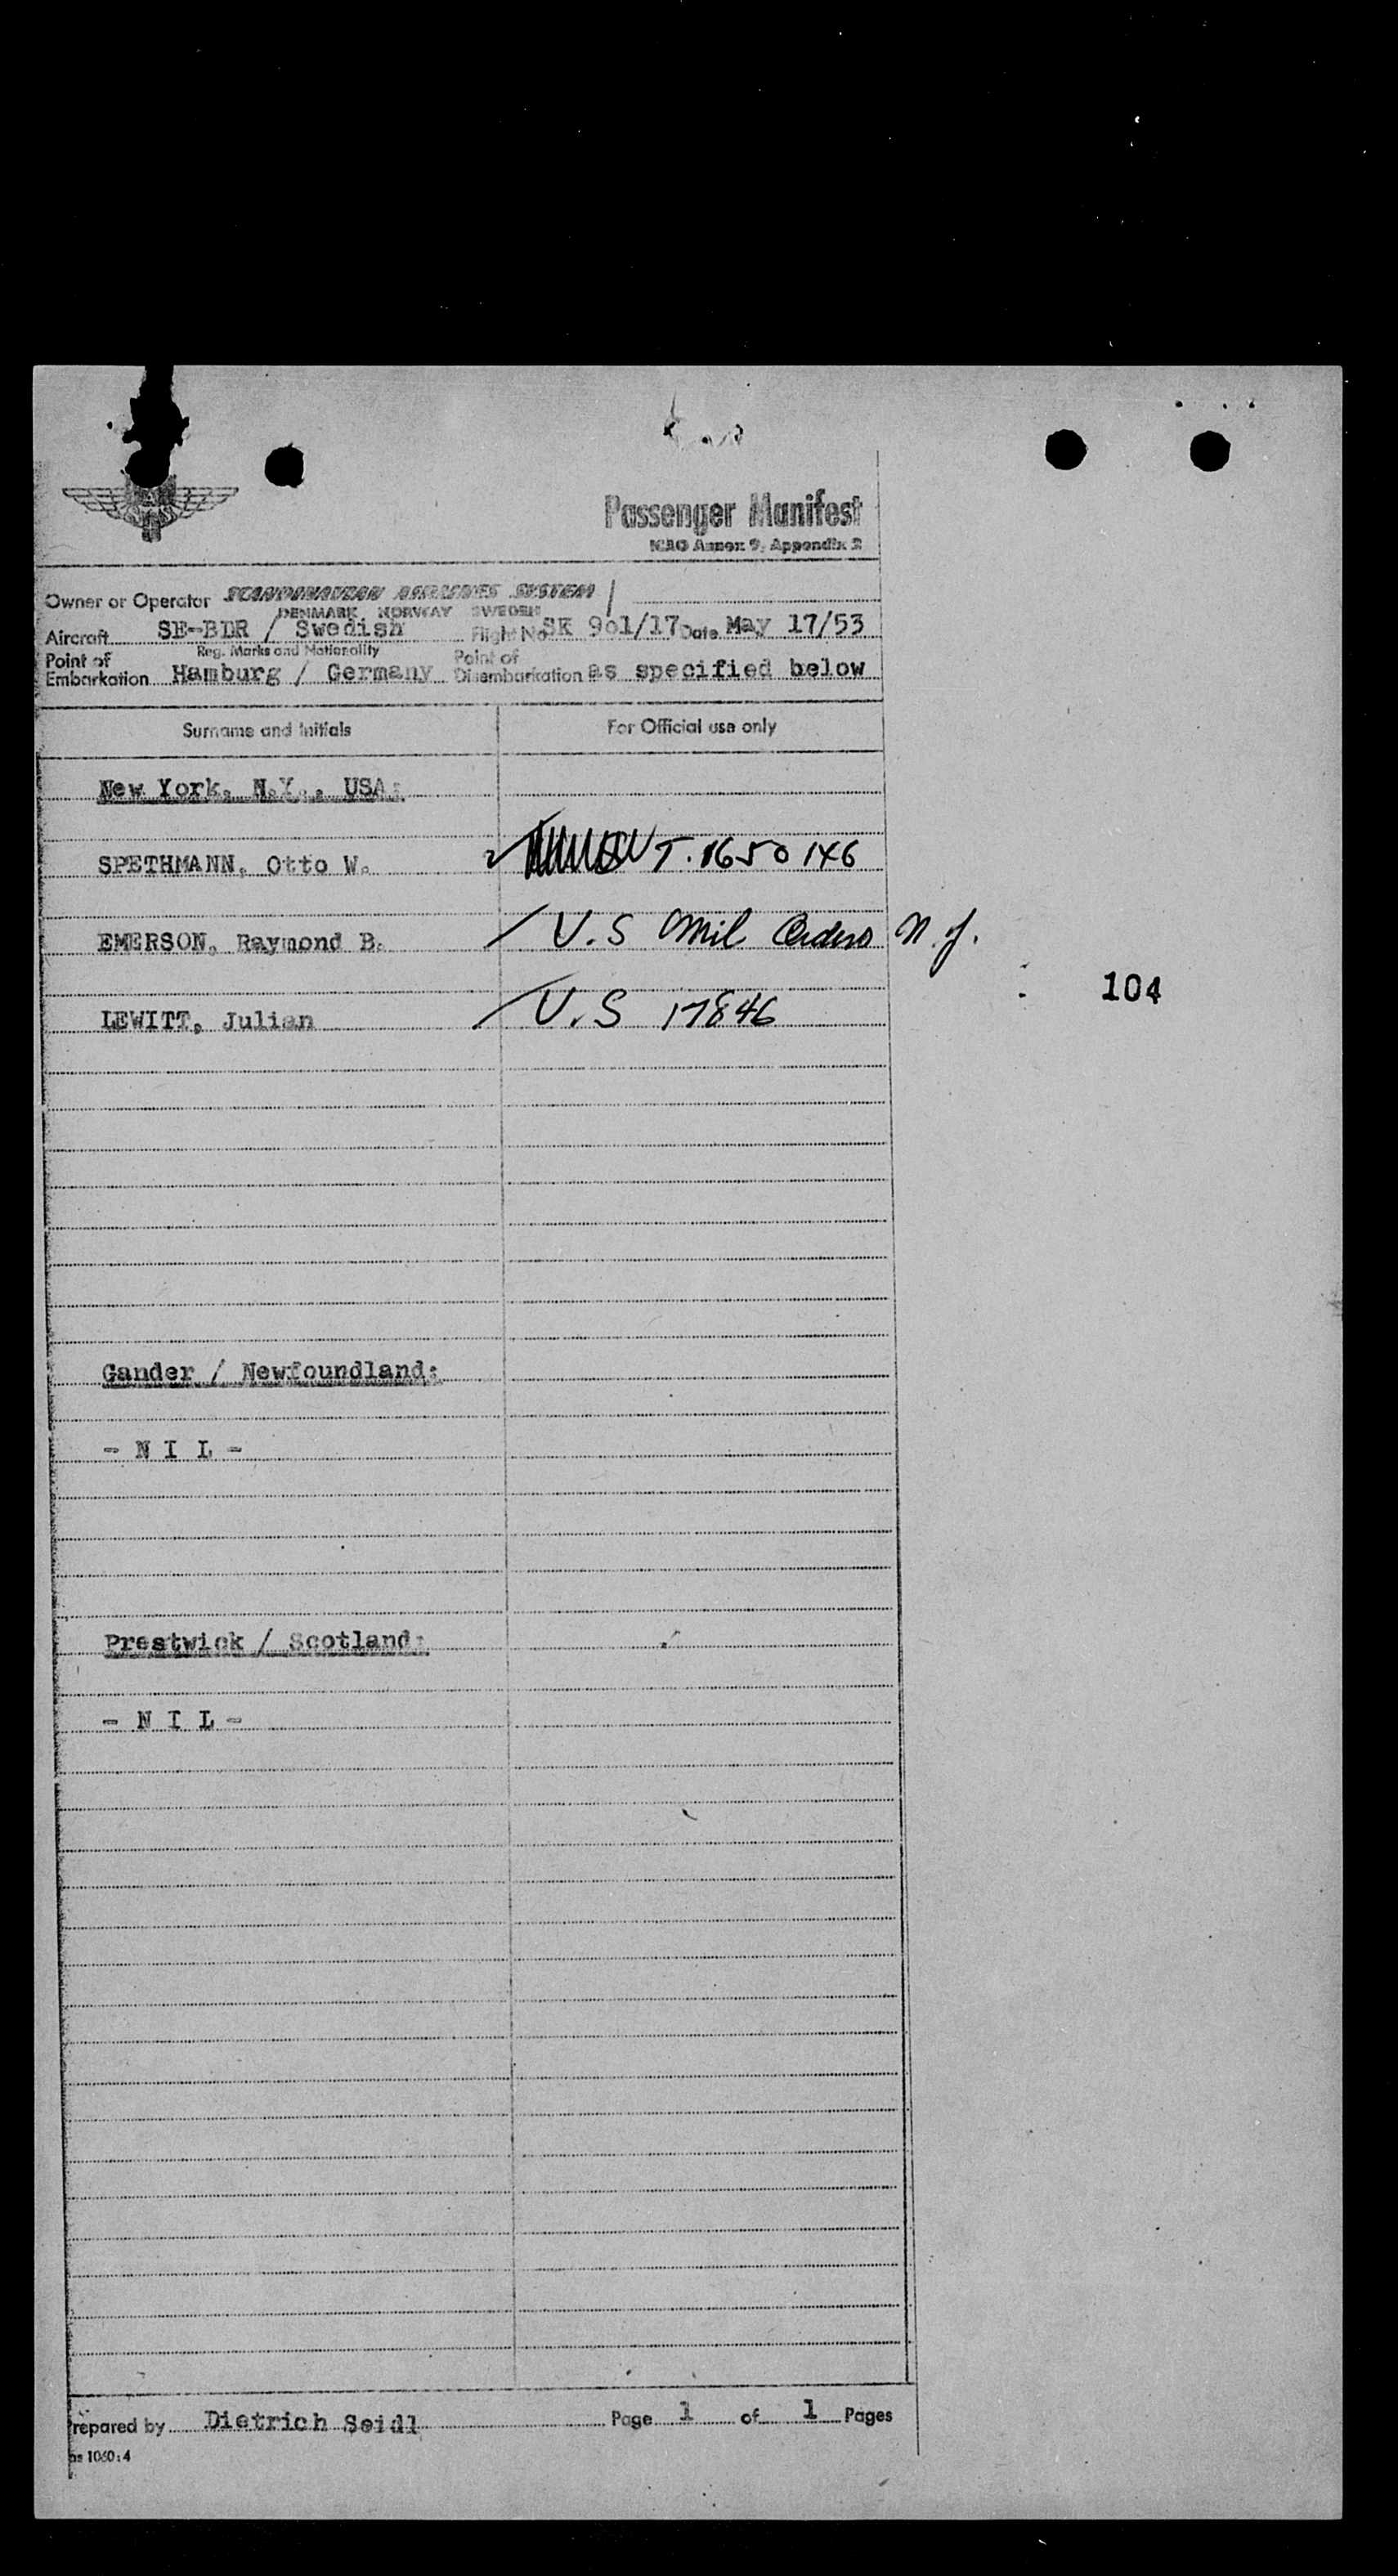 Passenger Manifest
ICAO Annex 9, Appendix 2
Owner or Operator SCANDINAVIAN AIRLINES SYSTEM
DENMARK NORWAY SWEDEN
Aircraft SE-BDR / Swedish Flight No SK 9o1/17 Date May 17/53
Reg. Marks and Nationality
Point of Embarkation Hamburg / Germany Point of Disembarkation as specified below
Surname and Initials For Official use only
New York, N.Y., USA:
SPETHMANN, Otto W. T.1650146
EMERSON, Raymond B. U.S Mil Orders N.J.
104
LEWITT, Julian U.S 17846
Gander / Newfoundland:
- N I L -
Prestwick / Scotland:
- N I L -
Prepared by Dietrich Seidl Page 1 of 1 Pages
1060:4